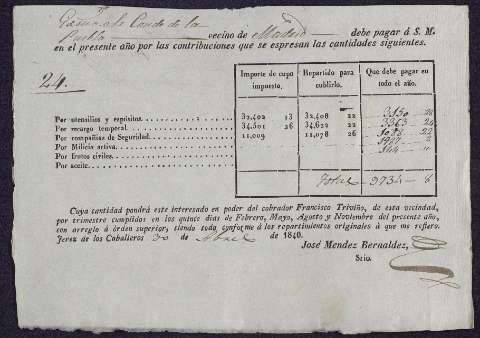 Conde de la
Puebla vecino de Madrid debe pagar á S. M.
en el presente año por las contribuciones que se espresan las cantidades siguientes.
24.
Importe de cupo impuesto. Repartido para cubrirlo. Que debe pagar en todo el año.
Por utensilios y expósitos. 32,402 13 32,408 22
Por recargo temporal. 34,501 26 34,622 22
Por compañias de Seguridad. 11,009 11,078 26
Por Milicia activa.
Por frutos civiles.
Por aceite.
Total 9734 6
Cuya cantidad pondrá este interesado en poder del cobrador Francisco Triviño, de esta vecindad,
por trimestre cumplidos en los quince dias de Febrero, Mayo, Agosto y Noviembre del presente año,
con arreglo á órden superior, siendo todo conforme á los repartimientos originales á que me refiero.
Jerez de los Caballeros 30 de Abril de 1840.
José Mendez Bernaldez,
Srio.